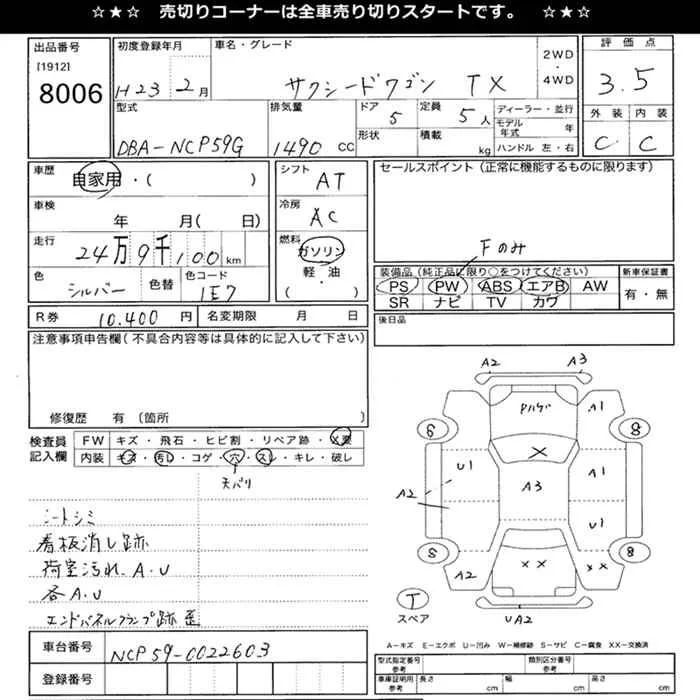 ☆★☆ 売切りコーナーは全車売り切りスタートです。 ☆★☆
出品番号 [1912] 8006
初度登録年月 H23年 2月
車名・グレード サクシードワゴン TX
2WD・4WD
評価点 3.5
外装 C 内装 C
型式 DBA-NCP59G
排気量 1490 CC
ドア 5
定員 5人
形状
積載 kg
ディーラー・並行
モデル年式 年
ハンドル 左・右
車歴 自家用・( )
車検 年 月( 日)
走行 24万9千100 km
色 シルバー 色替
色コード 1E7
シフト AT
冷房 AC
燃料 ガソリン 軽・油 ・( )
セールスポイント(正常に機能するものに限ります)
Fのみ
装備品(純正品に限り○をつけてください)
PS PW ABS エアB AW
SR ナビ TV カワ
新車保証書 有・無
R券 10.400 円
名変期限 月 日
後日品
注意事項申告欄(不具合内容等は具体的に記入して下さい)
修復歴 有(箇所 )
検査員記入欄
FW キズ・飛石・ヒビ割・リペア跡・X要
内装 キズ・汚れ・コゲ・穴・スレ・キレ・破レ
天バリ
シートシミ
看板消し跡
荷室汚れ、A・U
各A・U
エンドパネルクランプ跡 歪
A2 A3
Pハゲ A1
6 8
X
U1 A3 A1
A2 U1
S 8
A2 XX XX
T スペア
UA2
A−キズ E−エクボ U−凹み W−補修跡 S−サビ C−腐食 XX−交換済
車台番号 NCP59-0022603
登録番号
型式指定番号 参考
類別区分番号 参考
車庫証明用 参考 長さ cm 幅 cm 高さ cm